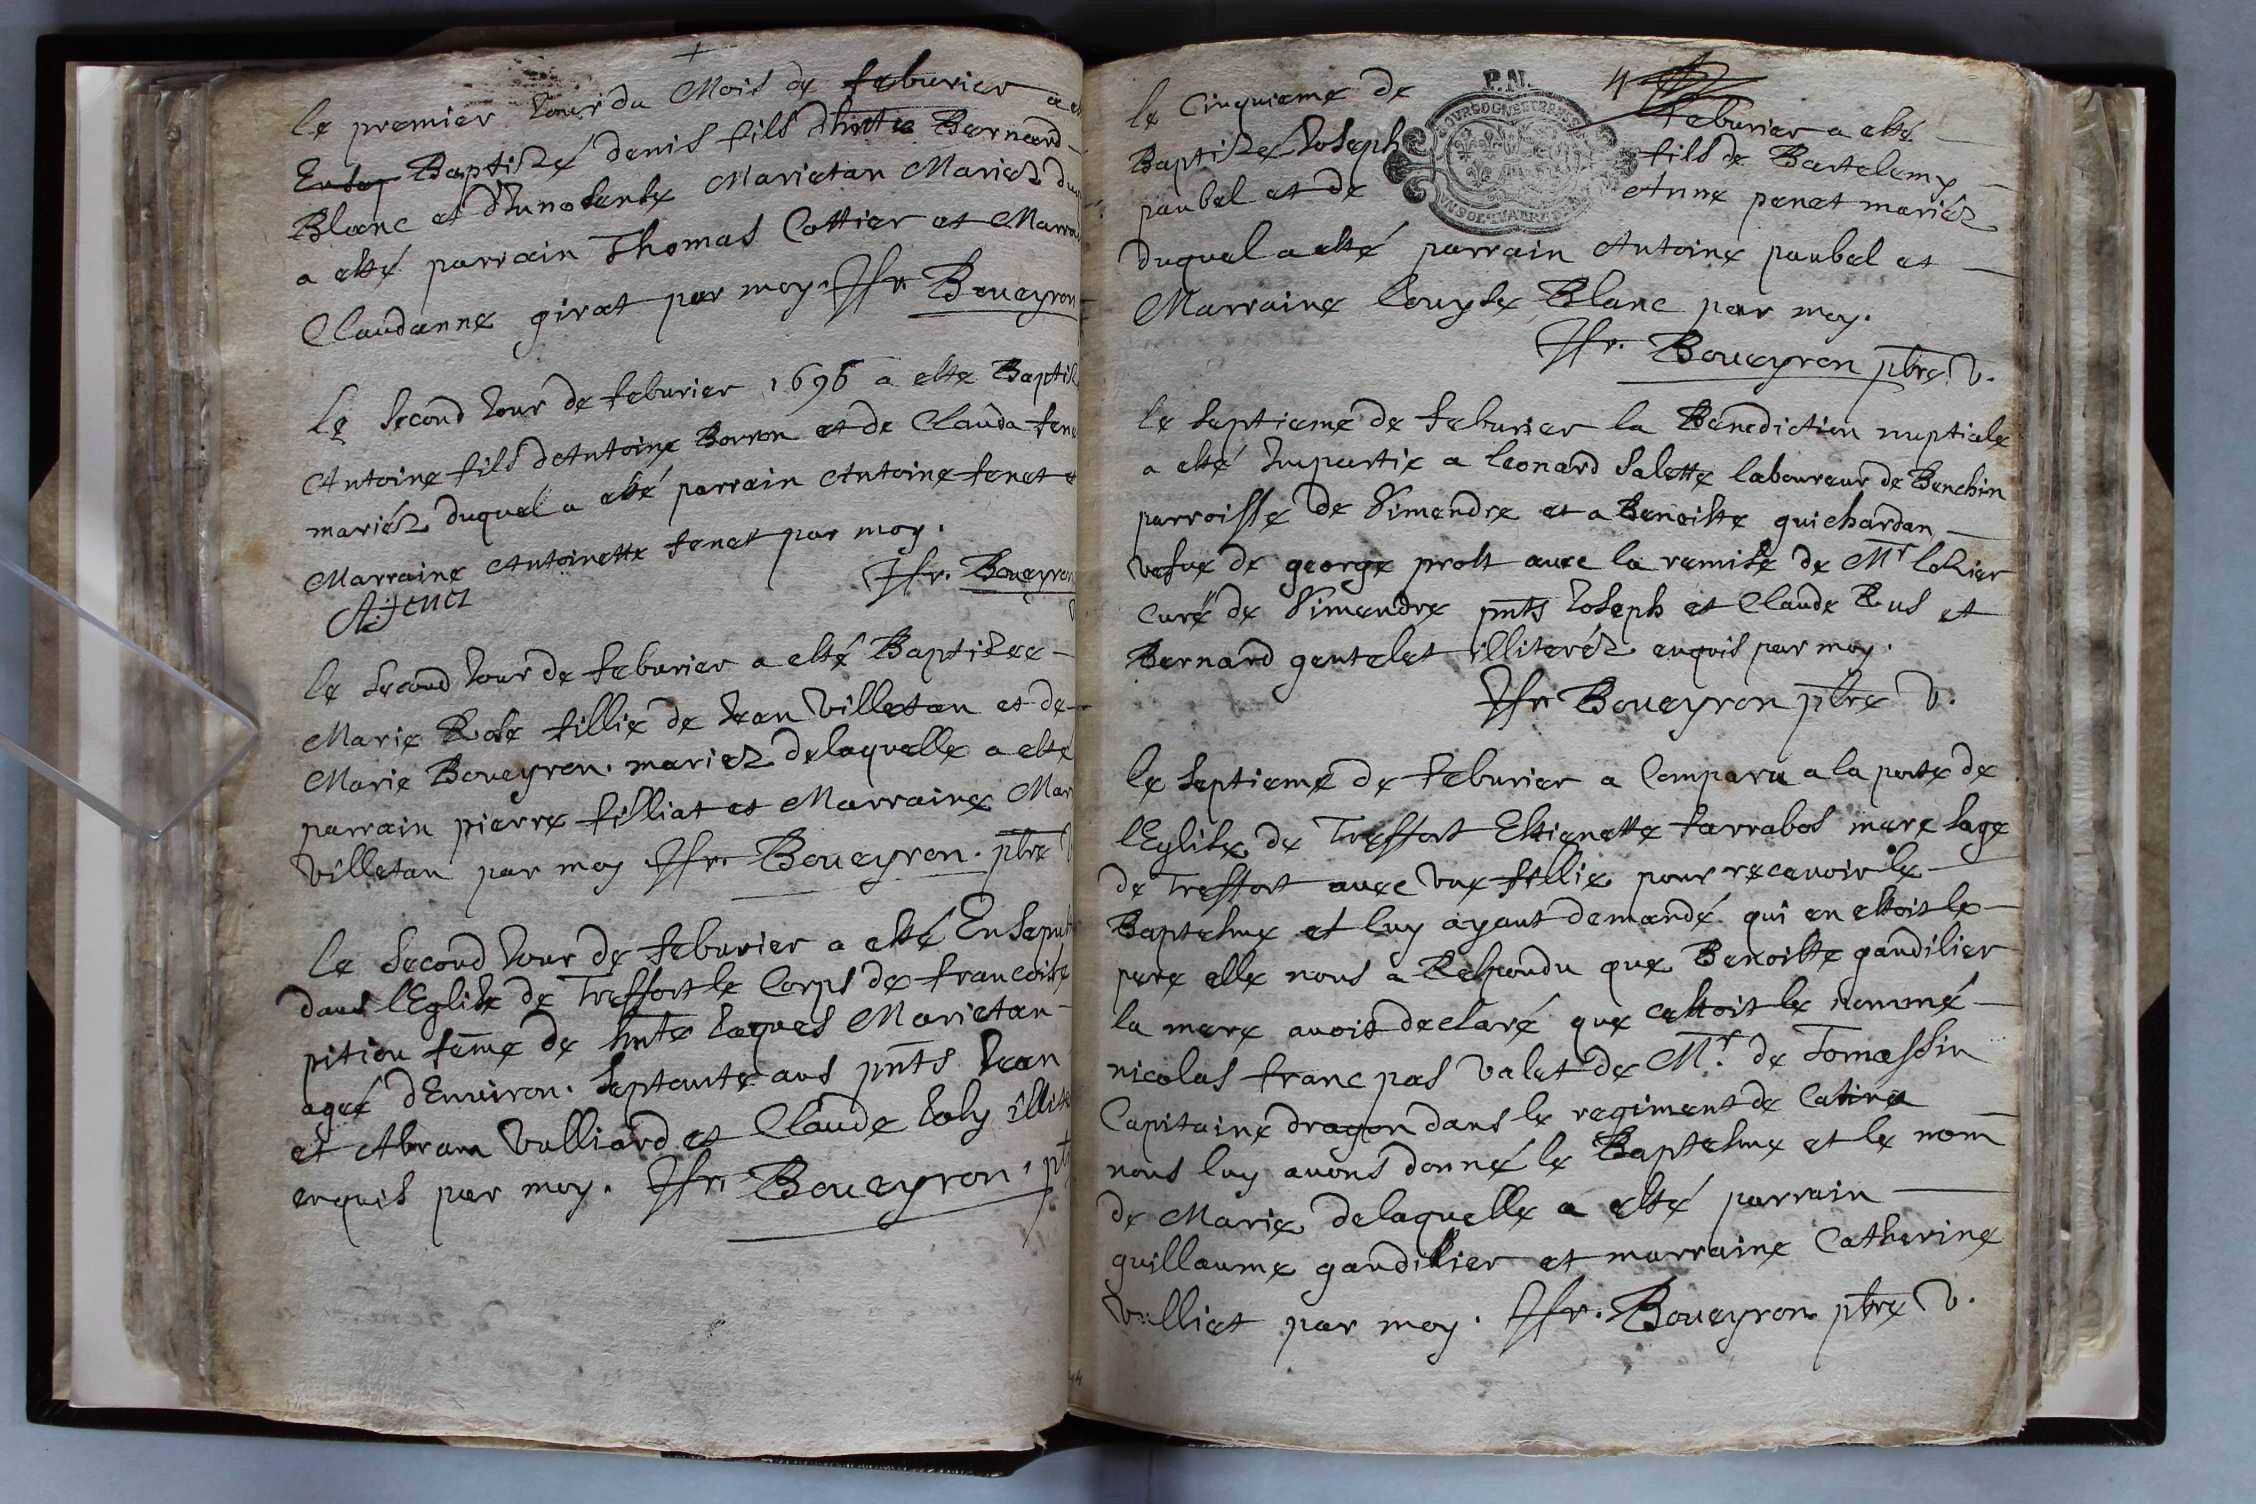 le premier Jour du Mois de feburier a es
Baptizé denis fils dhnte Bernard
Blanc et dInnosente Marietan Mariez du
a esté parrain Thomas Cottier et Marra
Claudanne girat par moy. Jfr. Boueyron
Le second Jour de feburier 1696 a esté Baptis
Antoine fils dAntoine Borron et de Clauda fene
mariéz duquel a esté parrain Antoine fenet e
Marraine Antoinette fenet par moy.
Jfr. Boueyron
A. fenet
le second Jour de feburier a esté Baptizee
Marie Rose fillie de Jean Villetan et de
Marie Boueyron. mariez delaquelle a esté
parrain pierre filliat et Marraine Mar
Villetan par moy. Jfr. Boueyron. ptre V
le second Jour de feburier a esté Ensepul
dans lEglise de Treffort le Corps de francoise
pition feme de hnte Jaques Marietan
ageé dEnuiron. septante ans pnts Jean
et Abram Vulliard et Claude Joly illite
enquis par moy. Jfr. Boueyron. pt
P.N.
4
le Cinquieme de feburier a esté
Baptize Joseph fils de Bartelemy
paubel et de Anne penet mariéz
duquel a esté parrain Antoine paubel et
Marraine louyse Blanc par moy.
Jfr. Boueyron ptre. V.
le septieme de feburier la Benediction nuptiale
a esté Impartie a leonard Salette laboureur de Benchin
parroisse de Simandre et a Benoiste guichardan
vefue de george prost auec la remise de Mr lohier
curé de Simandre pnts Joseph et Claude Rus et
Bernard gentelet illiteréz enquis par moy.
Jfr Boueyron ptre V.
le septieme de feburier a Comparu a la porte de
lEglise de Treffort Estienette farrabos mere sage
de Treffort auec vne fillie pour receuoir le
Baptesme et luy ayant demandé qui en estoit le
pere elle nous a Respondu que Benoiste gandilier
la mere auoit declaré que cestoit le nommé
nicolas franc pas valet de Mr. de Tomassin
Capitaine dragon dans le regiment de Catina
nous luy auons donné le Baptesme et le nom
de Marie delaquelle a esté parrain
guillaume gandilier et marraine Catherine
Vulliet par moy. Jfr. Boueyron ptre V.